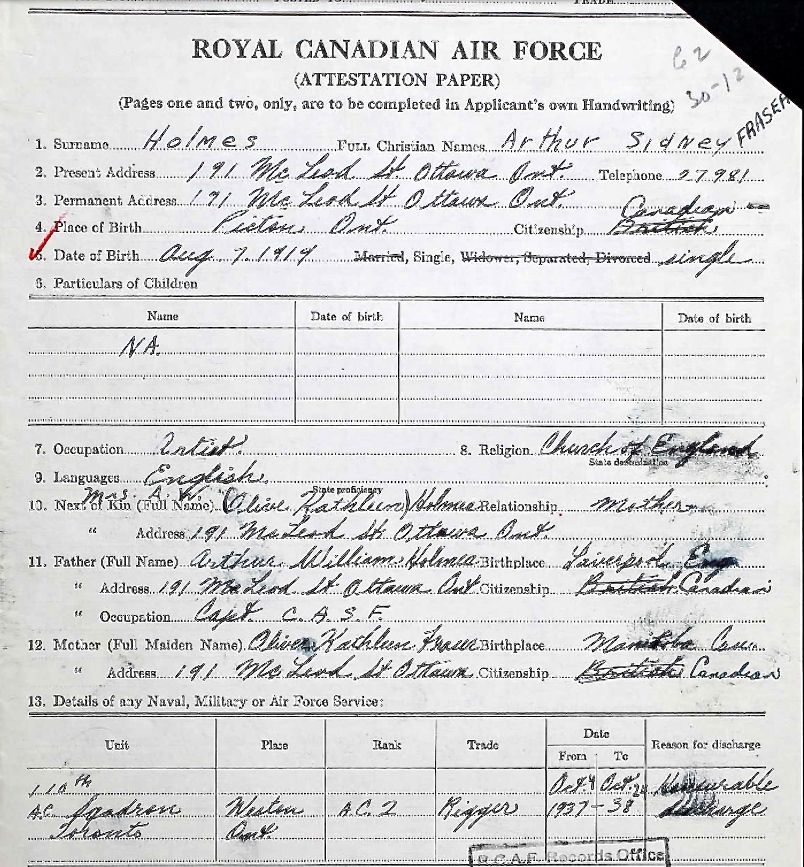 ROYAL CANADIAN AIR FORCE
(ATTESTATION PAPER)
(Pages one and two, only, are to be completed in Applicant's own Handwriting)
62
30-12
FRASER
1. Surname Holmes Full Christian Names Arthur Sidney
2. Present Address 191 McLeod St Ottawa Ont. Telephone 27981
3. Permanent Address 191 McLeod St Ottawa Ont.
Canadian
4. Place of Birth Picton Ont. Citizenship British
5. Date of Birth Aug 7. 1919 Married, Single, Widower, Separated, Divorced single
6. Particulars of Children
Name Date of birth Name Date of birth
NA.
7. Occupation Artist. 8. Religion Church of England
State denomination
9. Languages English
State proficiency
Mrs. A. W.
10. Next of Kin (Full Name) (Olive Kathleen) Holmes Relationship Mother
" Address 191 McLeod St Ottawa Ont.
11. Father (Full Name) Arthur William Holmes Birthplace Liverpool Eng
" Address 191 McLeod St Ottawa Ont Citizenship British Canadian
" Occupation Capt C.A.S.F.
12. Mother (Full Maiden Name) Olive Kathleen Fraser Birthplace Manitoba Can.
" Address 191 McLeod St Ottawa Citizenship British Canadian
13. Details of any Naval, Military or Air Force Service:
Unit Place Rank Trade Date Reason for discharge
From To
110th Oct. 4 Oct. 28 Honourable
A.C. Sqadron Weston A.C. 2 Rigger 1937-38 discharge
Toronto Ont.
R.C.A.F. Records Office